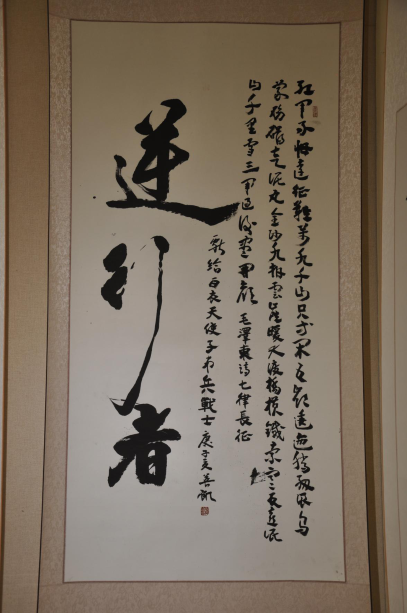 红军不怕遠征難萬水千山只等闲五岭逶迤腾细浪乌
蒙磅礴走泥丸金沙水拍雲崖暖大渡橋横鐵索寒更喜岷
山千里雪三军过後盡開颜 毛澤東詩七律長征
献给白衣天使子弟兵戰士 庚子夏善凯
逆行者